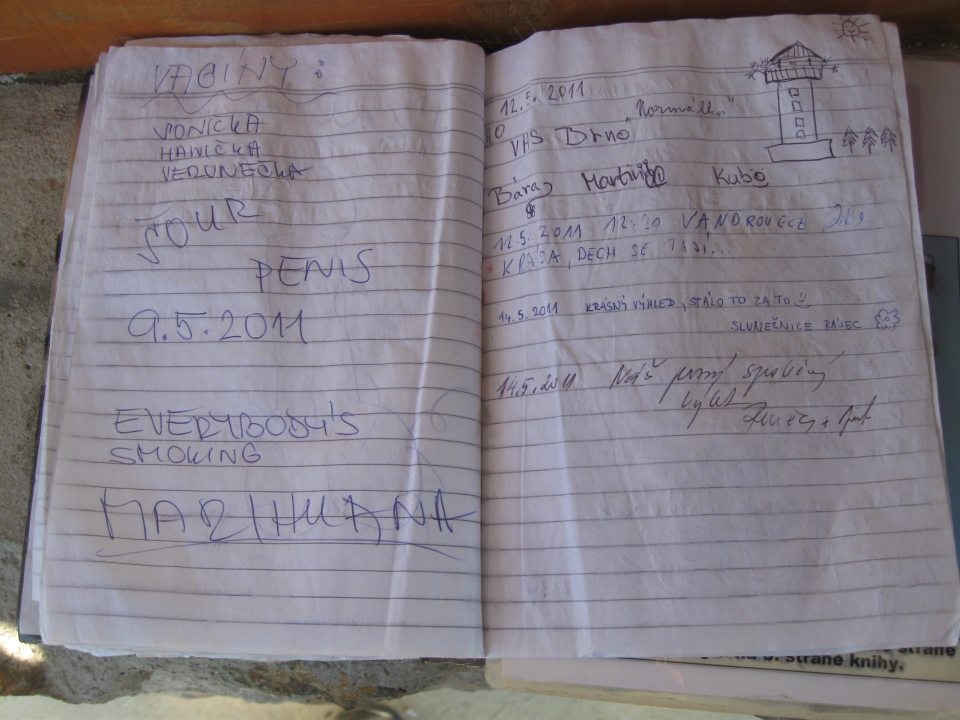 VAGINY :
VONICKA
HANIČKA
VERUNEČKA
ŠOUR
PENIS
9.5.2011
EVERYBODY'S
SMOKING
MARIHUANA
12.5. 2011
VHS Brno
Bára
Kubo
12.5. 2011 12:20 VANDROVECZ
KRÁSA, DECH SE TAJÍ...
14.5.2011 KRÁSNÝ VÝHLED, STÁLO TO ZA TO
SLUNEČNICE RÁJEC
14.5.2011 Náš první společný
výlet
strane
5. straně knihy.